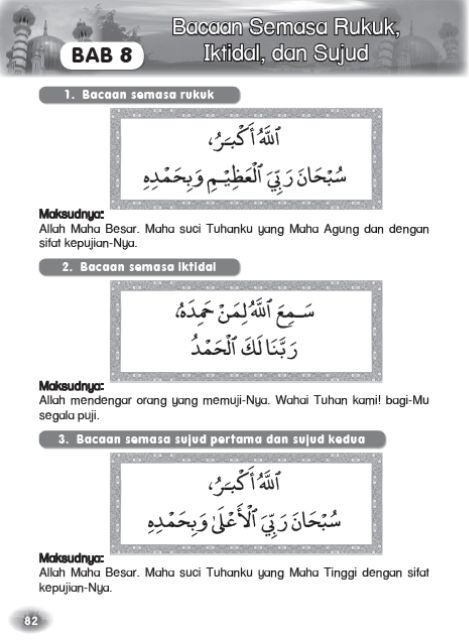 BAB 8
Bacaan Semasa Rukuk,
Iktidal, dan Sujud
1. Bacaan semasa rukuk
اَللّٰهُ أَكْبَرُ،
سُبْحَانَ رَبِّيَ الْعَظِيْمِ وَبِحَمْدِهِ
Maksudnya:
Allah Maha Besar. Maha suci Tuhanku yang Maha Agung dan dengan
sifat kepujian-Nya.
2. Bacaan semasa iktidal
سَمِعَ اللّٰهُ لِمَنْ حَمِدَهُ،
رَبَّنَا لَكَ الْحَمْدُ
Maksudnya:
Allah mendengar orang yang memuji-Nya. Wahai Tuhan kami! bagi-Mu
segala puji.
3. Bacaan semasa sujud pertama dan sujud kedua
اَللّٰهُ أَكْبَرُ،
سُبْحَانَ رَبِّيَ الْأَعْلَى وَبِحَمْدِهِ
Maksudnya:
Allah Maha Besar. Maha suci Tuhanku yang Maha Tinggi dengan sifat
kepujian-Nya.
82